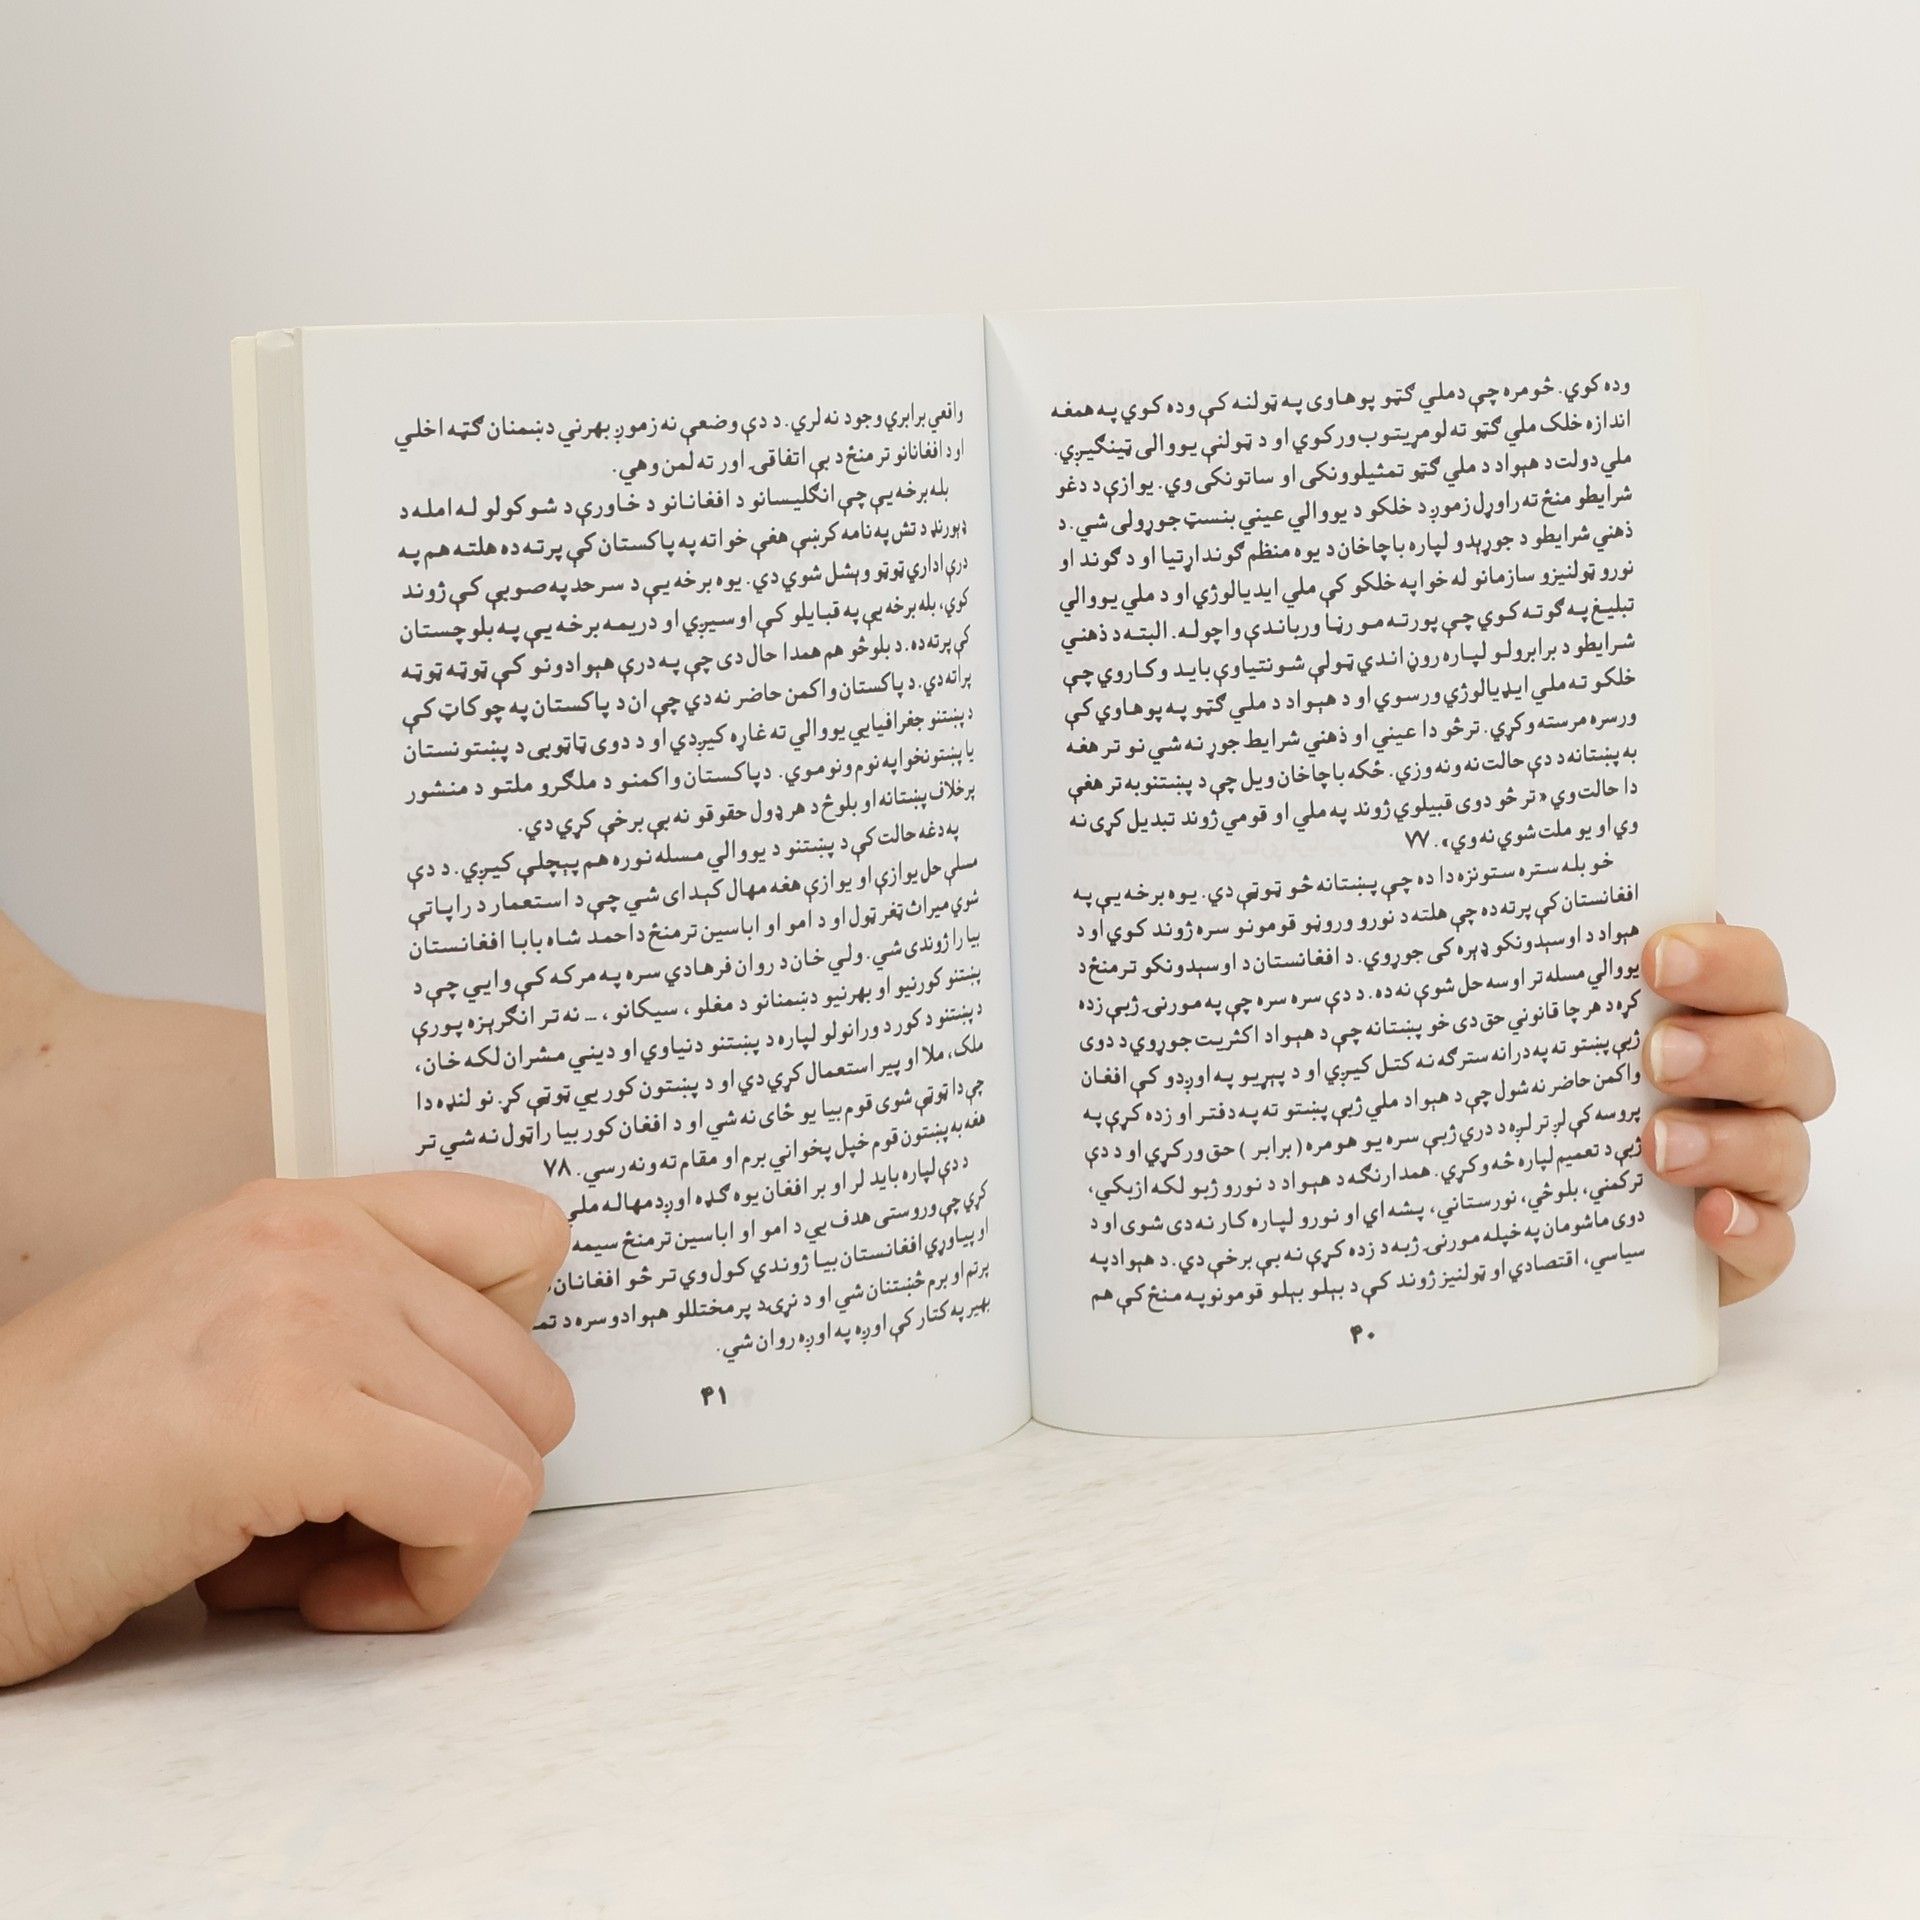 وده کوي. څومره چې دملي ګټو پوهاوی په ټولنه کې وده کوي په همغه
اندازه خلک ملي ګټو ته لومړيتوب ورکوي او د ټولنې يووالی ټينګيږي.
ملي دولت د هېواد د ملي ګټو تمثيلوونکی او ساتونکی وي. يوازې د دغو
شرايطو منځ ته راوړل زموږ د خلکو د يووالي عيني بنسټ جوړولی شي. د
ذهني شرايطو د جوړېدو لپاره باچاخان د يوه منظم ګوند اړتيا او د ګوند او
نورو ټولنيزو سازمانو له خوا په خلکو کې ملي ايديالوژي او د ملي يووالي
تبليغ په ګوته کوي چې پورته مو رڼا ورباندې واچوله. البته د ذهني
شرايطو د برابرولو لپاره روڼ اندي ټولې شونتياوې بايد وکاروي چې
خلکو ته ملي ايډيالوژي ورسوي او د هېواد د ملي ګټو په پوهاوي کې
ورسره مرسته وکړي. ترڅو دا عيني او ذهني شرايط جوړ نه شي نو تر هغه
به پښتانه د دې حالت نه ونه وزي. ځکه باچاخان ويل چې د پښتنو به تر هغې
دا حالت وي «تر څو دوی قبيلوي ژوند په ملي او قومي ژوند تبديل کړی نه
وي او يو ملت شوي نه وي». ۷۷
خو بله ستره ستونزه دا ده چې پښتانه څو ټوټې دي. يوه برخه يې په
افغانستان کې پرته ده چې هلته د نورو وروڼو قومونو سره ژوند کوي او د
هېواد د اوسېدونکو ډېره کی جوړوي. د افغانستان د اوسېدونکو ترمنځ د
يووالي مسله تر اوسه حل شوې نه ده. د دې سره سره چې په مورنۍ ژبې زده
کړه د هر چا قانوني حق دی خو پښتانه چې د هېواد اکثريت جوړوي د دوی
ژبې پښتو ته په درانه سترګه نه کتل کيږي او د پېړيو په اوږدو کې افغان
واکمن حاضر نه شول چې د هېواد ملي ژبې پښتو ته په دفتر او زده کړې په
پروسه کې لږ تر لږه د دري ژبې سره يو هومره ( برابر ) حق ورکړي او د دې
ژبې د تعميم لپاره څه وکړي. همدارنګه د هېواد د نورو ژبو لکه ازبکي،
ترکمني، بلوڅي، نورستاني، پشه اي او نورو لپاره کار نه دی شوی او د
دوی ماشومان په خپله مورنۍ ژبه د زده کړې نه بې برخې دي. د هېواد په
سياسي، اقتصادي او ټولنيز ژوند کې د بېلو بېلو قومونو په منځ کې هم
۴۰
واقعي برابري وجود نه لري. د دې وضعې نه زموږ بهرني دښمنان ګټه اخلي
او د افغانانو تر منځ د بې اتفاقۍ اور ته لمن وهي.
بله برخه يې چې انګليسانو د افغانانو د خاورې د شوکولو له امله د
ډېورنډ د تش په نامه کرښې هغې خوا ته په پاکستان کې پرته ده هلته هم په
درې اداري ټوټو وېشل شوي دي. يوه برخه يې د سرحد په صوبې کې ژوند
کوي، بله برخه يې په قبايلو کې اوسيږي او دريمه برخه يې په بلوچستان
کې پرته ده. د بلوڅو هم همدا حال دی چې په درې هېوادونو کې ټوټه ټوټه
پراته دي. د پاکستان واکمن حاضر نه دي چې ان د پاکستان په چوکاټ کې
د پښتنو جغرافيايي يووالي ته غاړه کيږدي او د دوی ټاټوبی د پښتونستان
يا پښتونخوا په نوم ونوموي. د پاکستان واکمنو د ملګرو ملتو د منشور
پرخلاف پښتانه او بلوڅ د هر ډول حقوقو نه بې برخې کړي دي.
په دغه حالت کې د پښتنو د يووالي مسله نوره هم پېچلې کيږي. د دې
مسلې حل يوازې او يوازې هغه مهال کېدای شي چې د استعمار د راپاتې
شوي ميراث ټغر ټول او د امو او اباسين ترمنځ د احمد شاه بابا افغانستان
بيا را ژوندی شي. ولي خان د روان فرهادي سره په مرکه کې وايي چې د
پښتنو کورنيو او بهرنيو دښمنانو د مغلو، سيکانو، ... نه تر انګرېزه پورې
د پښتنو د کور د ورانولو لپاره د پښتنو دنياوي او ديني مشران لکه خان،
ملک، ملا او پير استعمال کړي دي او د پښتون کور يې ټوټې کړ. نو لنډه دا
چې دا ټوټې شوی قوم بيا يو ځای نه شي او د افغان کور بيا راټول نه شي تر
هغه به پښتون قوم خپل پخواني برم او مقام ته ونه رسي. ۷۸
د دې لپاره بايد لر او بر افغان يوه ګډه اوږد مهاله ملي
کړي چې وروستی هدف يې د امو او اباسين ترمنځ سيمه
او پياوړي افغانستان بيا ژوندي کول وي تر څو افغانان
پرتم او برم څښتنان شي او د نړۍ د پرمختللو هېوادو سره د
بهير په کتار کې اوږه په اوږه روان شي.
۴۱